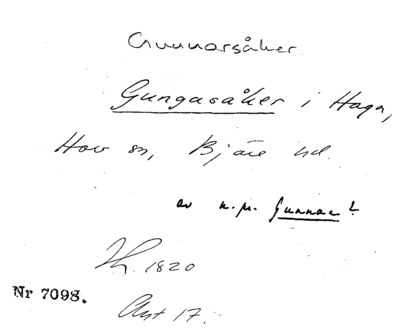 Gunnarsåker
Gungasåker i Haga,
Hov sn, Bjäre hd.
av n.pr. Gunnar?
Lh. 1820
Nr 7098.
Akt 17.